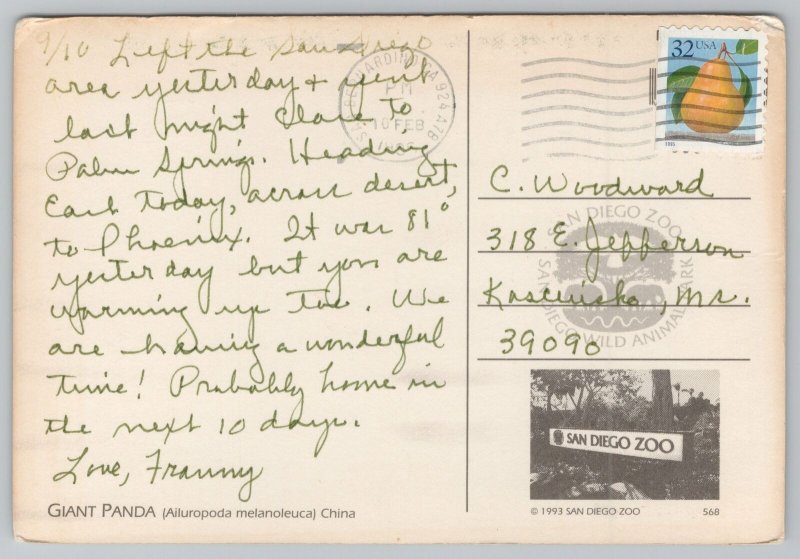 9/10 Left the San Diego
area yesterday + spent
last night close to
Palm Springs. Heading
East today, across desert,
to Phoenix. It was 81°
yesterday but you are
warming up too. We
are having a wonderful
time! Probably home in
the next 10 days.
Love, Franny
GIANT PANDA (Ailuropoda melanoleuca) China
SAN BERNARDINO CA 924
PM
10 FEB
32 USA
1995
C. Woodward
318 E. Jefferson
Kosciusko, Ms.
39090
SAN DIEGO ZOO
SAN DIEGO WILD ANIMAL PARK
SAN DIEGO ZOO
© 1993 SAN DIEGO ZOO 568